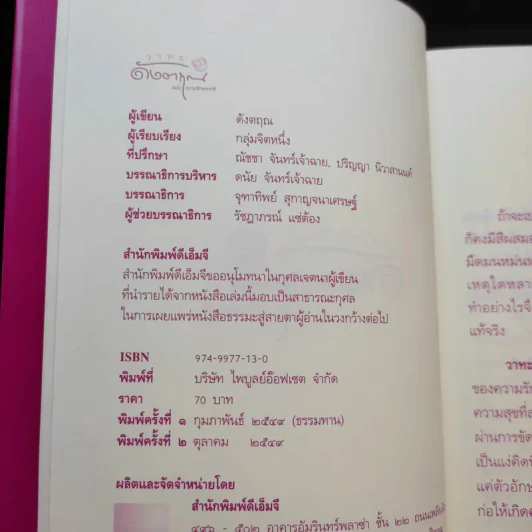 วาทะ
ดังตฤณ
ผู้เขียน ดังตฤณ
ผู้เรียบเรียง กลุ่มจิตหนึ่ง
ที่ปรึกษา ณัชชา จันทร์เจ้าฉาย, ปริญญา นิวาสานนท์
บรรณาธิการบริหาร ดนัย จันทร์เจ้าฉาย
บรรณาธิการ จุฑาทิพย์ สุกาญจนาเศรษฐ์
ผู้ช่วยบรรณาธิการ รัชฎาภรณ์ แซ่ต้อง
สำนักพิมพ์ดีเอ็มจี
สำนักพิมพ์ดีเอ็มจีขออนุโมทนาในกุศลเจตนาผู้เขียน
ที่นำรายได้จากหนังสือเล่มนี้มอบเป็นสาธารณะกุศล
ในการเผยแพร่หนังสือธรรมะสู่สายตาผู้อ่านในวงกว้างต่อไป
ISBN 974-9977-13-0
พิมพ์ที่ บริษัท ไพบูลย์อ๊อฟเซต จำกัด
ราคา 70 บาท
พิมพ์ครั้งที่ ๑ กุมภาพันธ์ ๒๕๔๙ (ธรรมทาน)
พิมพ์ครั้งที่ ๒ ตุลาคม ๒๕๔๙
ผลิตและจัดจำหน่ายโดย
สำนักพิมพ์ดีเอ็มจี
๔๙๖ - ๕๐๒ อาคารอัมรินทร์พลาซ่า ชั้น ๒๒
ถ้าจะ
ก็คงมีสีผสม
มืดมนหม่น
เหตุใดหลา
ทำอย่างไรจึ
แท้จริง
วาทะ
ของความรั
ความสุขที่
ผ่านการขัด
เป็นแง่คิด
แค่ตัวอักษ
ก่อให้เกิด